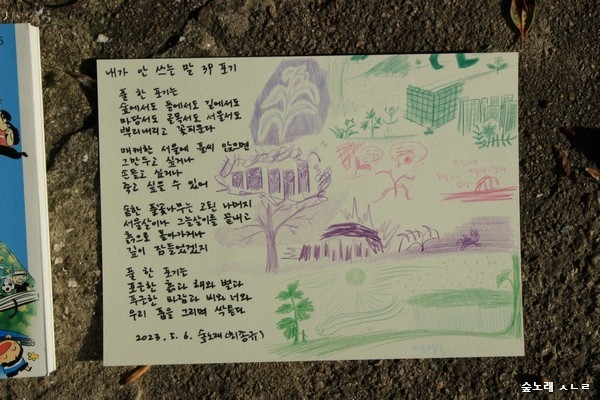 내가 안 쓰는 말 39 포기
풀 한 포기는
숲에서도 들에서도 길에서도
마당에서도 골목서도 서울서도
뿌리내리고 꽃피운다
매캐한 서울에 풀씨 앉으면
그만두고 싶거나
손들고 싶거나
죽고 싶을 수 있어
숱한 들꽃나무는 고된 나머지
서울살이나 그늘살이를 끝내고
흙으로 돌아가거나
깊이 잠들었겠지
풀 한 포기는
포근한 흙과 해와 별과
푸근한 바람과 비와 너와
우리 품을 그리며 싹튼다
2023. 5. 6. 숲노래(최종규)
숲노래 ㅅㄴㄹ